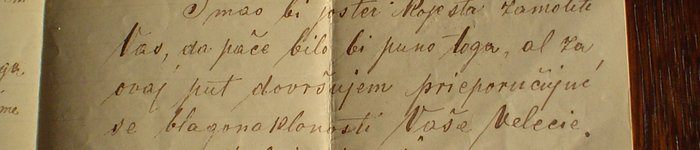 Imao bi jošter kojesta zamoliti
Vas, da pače bilo bi puno toga, al za
ovaj put dovršujem prieporučujuć
se blagonaklonosti Vaše Velecie.
ga
me